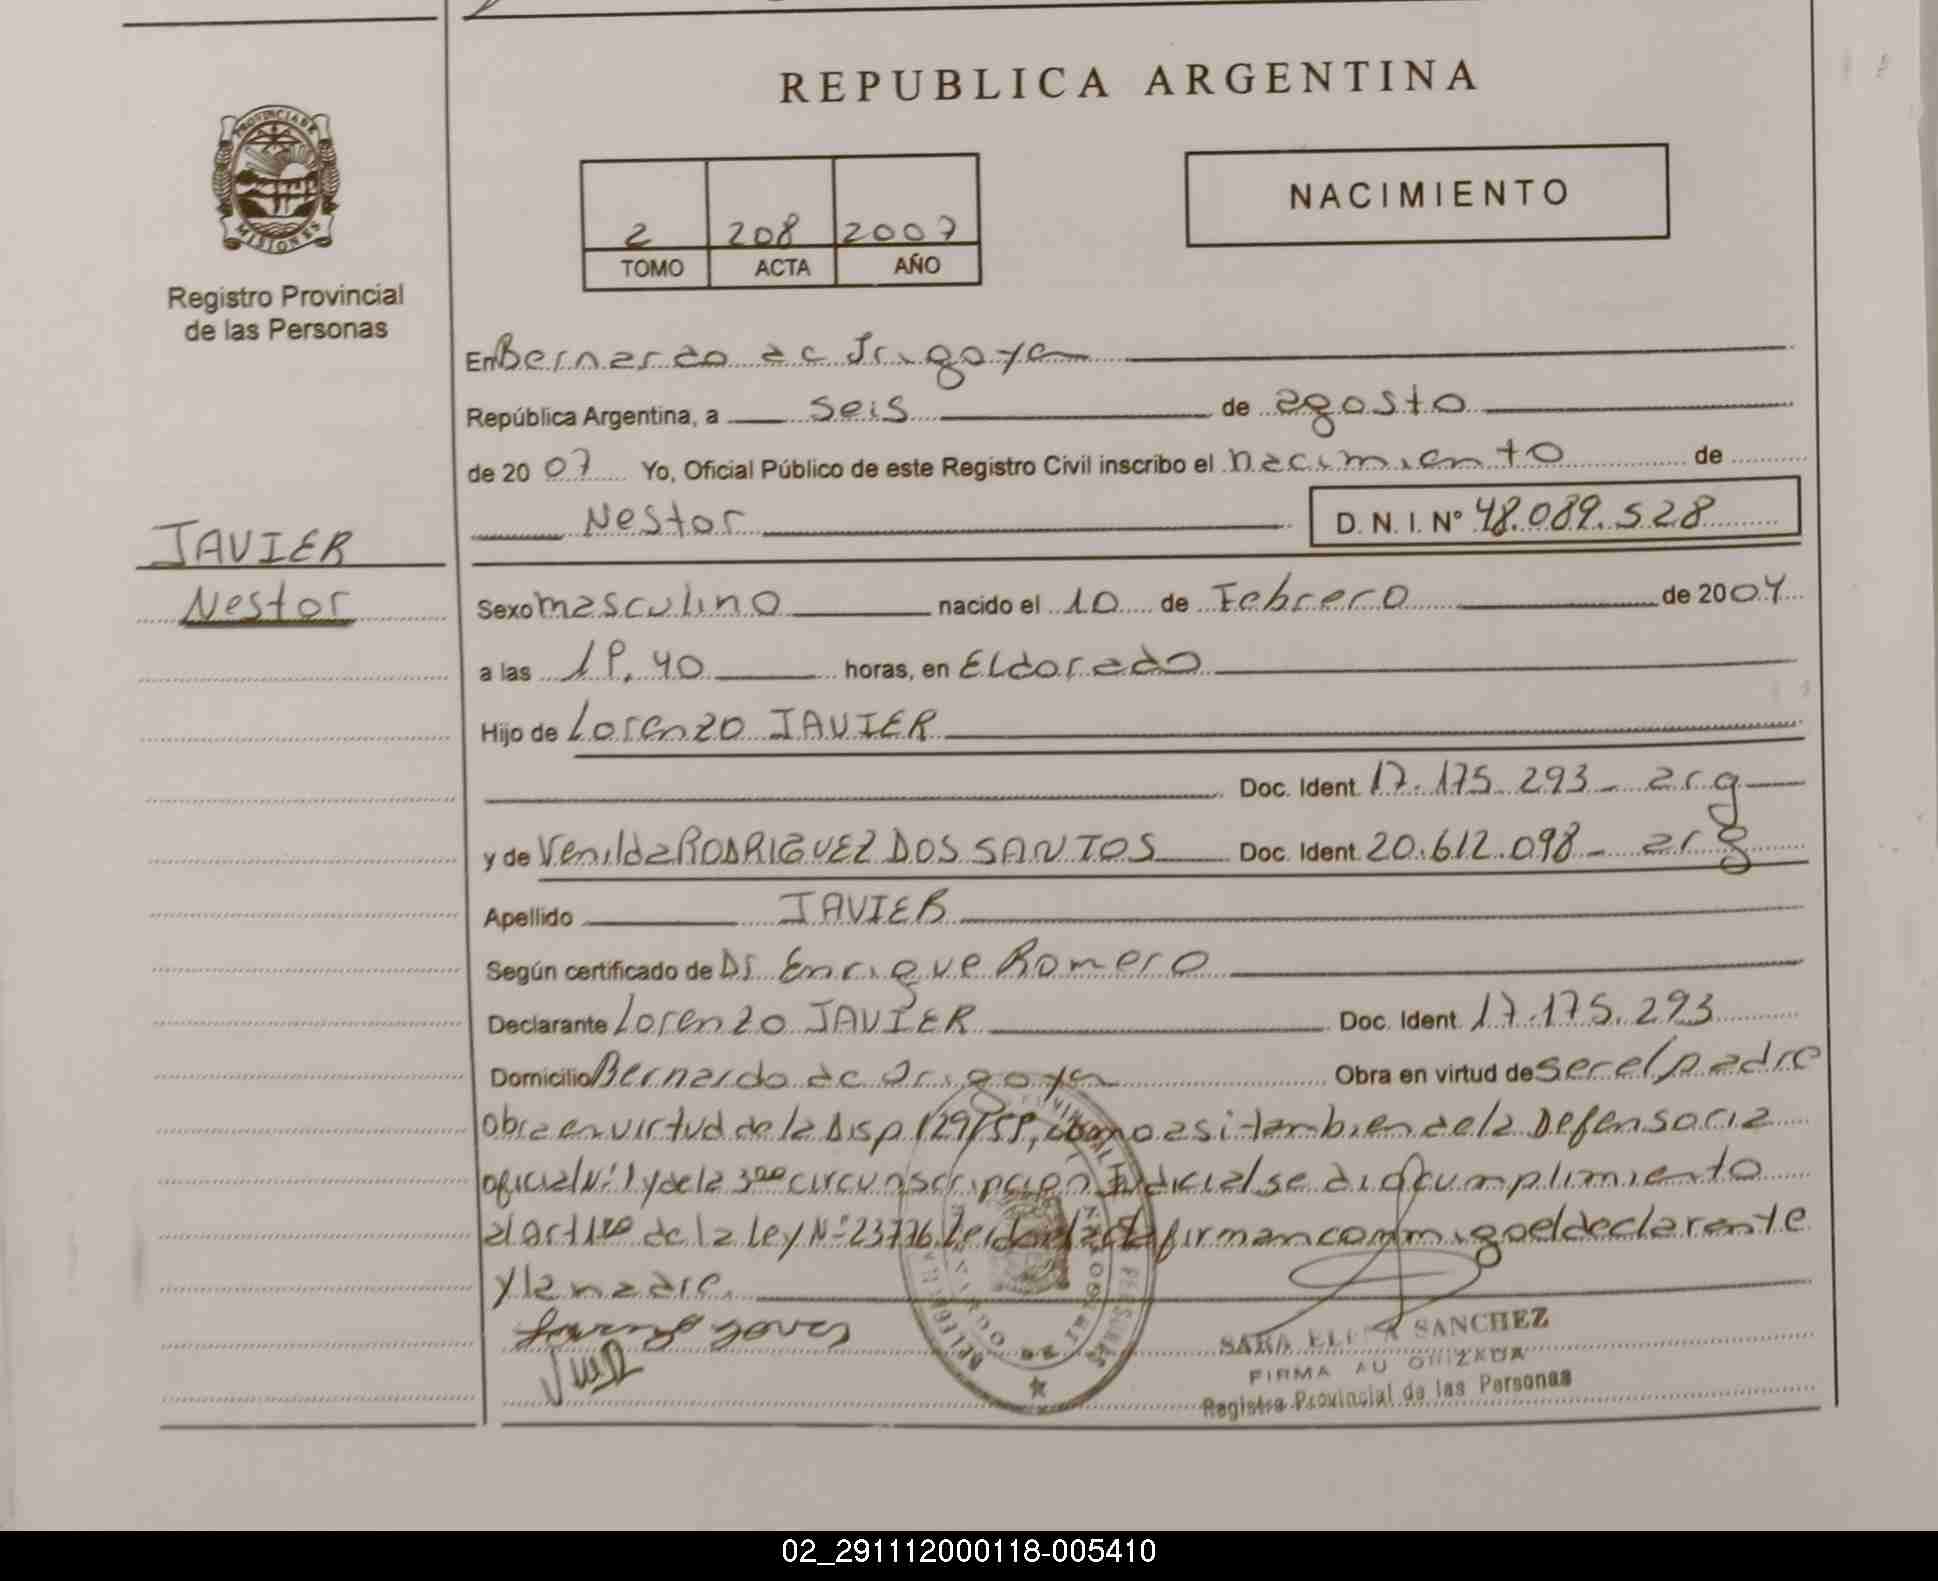 REPUBLICA ARGENTINA
PROVINCIA DE
MISIONES
Registro Provincial
de las Personas
2 208 2007
TOMO ACTA AÑO
NACIMIENTO
JAVIER
Nestor
En Bernardo de Irigoyen
República Argentina, a seis de agosto
de 20 07 Yo, Oficial Público de este Registro Civil inscribo el nacimiento de
Nestor D. N. I. Nº 48.089.528
Sexo masculino nacido el 10 de Febrero de 20 04
a las 19.40 horas, en Eldorado
Hijo de Lorenzo JAVIER
Doc. Ident. 17.175.293 - arg
y de Venilda RODRIGUEZ DOS SANTOS Doc. Ident. 20.612.098 - arg
Apellido JAVIER
Según certificado de Dr Enrique Romero
Declarante Lorenzo JAVIER Doc. Ident. 17.175.293
Domicilio Bernardo de Irigoyen Obra en virtud de ser el padre
Obra en virtud de la Disp 129/, como asi tambien de la Defensoria
oficial Nº 1 y de la 3ra circunscripcion Judicial se dio cumplimiento
al art 1ro de la Ley Nº 23776 Leida el acta firman conmigo el declarante
y la madre.
SARA ELENA SANCHEZ
FIRMA AUTORIZADA
Registro Provincial de las Personas
02_291112000118-005410